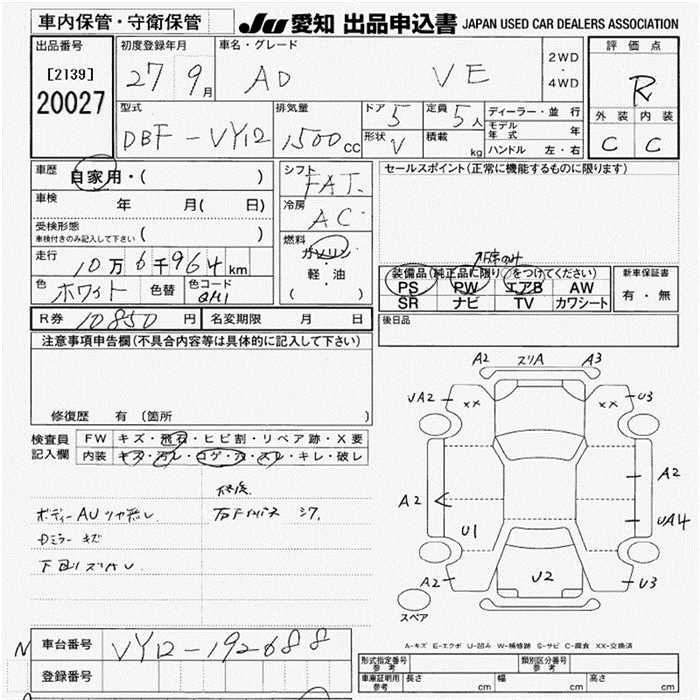 車内保管・守衛保管 JU 愛知 出品申込書 JAPAN USED CAR DEALERS ASSOCIATION
出品番号 初度登録年月 車名・グレード 評価点
[2139] 27 9月 AD VE 2WD・4WD R
20027 型式 排気量 ドア 5 定員 5人 ディーラー・並行 外装 内装
DBF-VY12 1500cc 形状 V 積載 kg モデル年式 年 C C
ハンドル 左・右
車歴 自家用・( ) シフト FAT. セールスポイント(正常に機能するものに限ります)
車検 年 月( 日) 冷房 AC
受検形態 車検付きのみ記入して下さい ( ) 燃料 ガソリン・軽油 ( )
走行 10万6千964km
装備品(純正品に限り○をつけてください) 新車保証書
色 ホワイト 色替 色コード QM1 PS PW エアB AW 有・無
SR ナビ TV カワシート
R券 10850円 名変期限 月 日 後日品
注意事項申告欄(不具合内容等は具体的に記入して下さい)
修復歴 有 (箇所
検査員記入欄 FW キズ・飛石・ヒビ割・リペア跡・X要
内装 キズ・汚レ・コゲ・穴・スレ・キレ・破レ
ボディーAU
Dミラー キズ
A2 スリA A3
UA2 XX XX U3
A2 A2
U1 UA4
A2 U2 U3
スペア
A-キズ E-エクボ U-凹み W-補修跡 S-サビ C-腐食 XX-交換済
N 車台番号 VY12-192688
登録番号
形式指定番号 参考 類別区分番号 参考
車庫証明用 参考 長さ cm 幅 cm 高さ cm